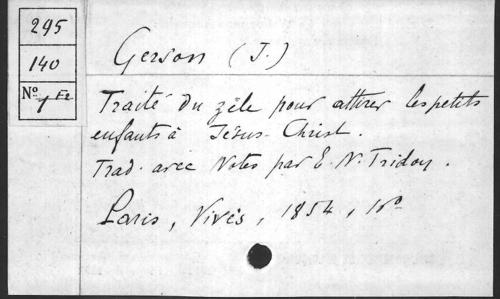 295
140
Nº 1 F2
Gerson (J.)
Traité du zèle pour attirer les petits
enfants à Jésus-Christ.
Trad. avec Notes par E. N. Tridon.
Paris, Vivès, 1854,